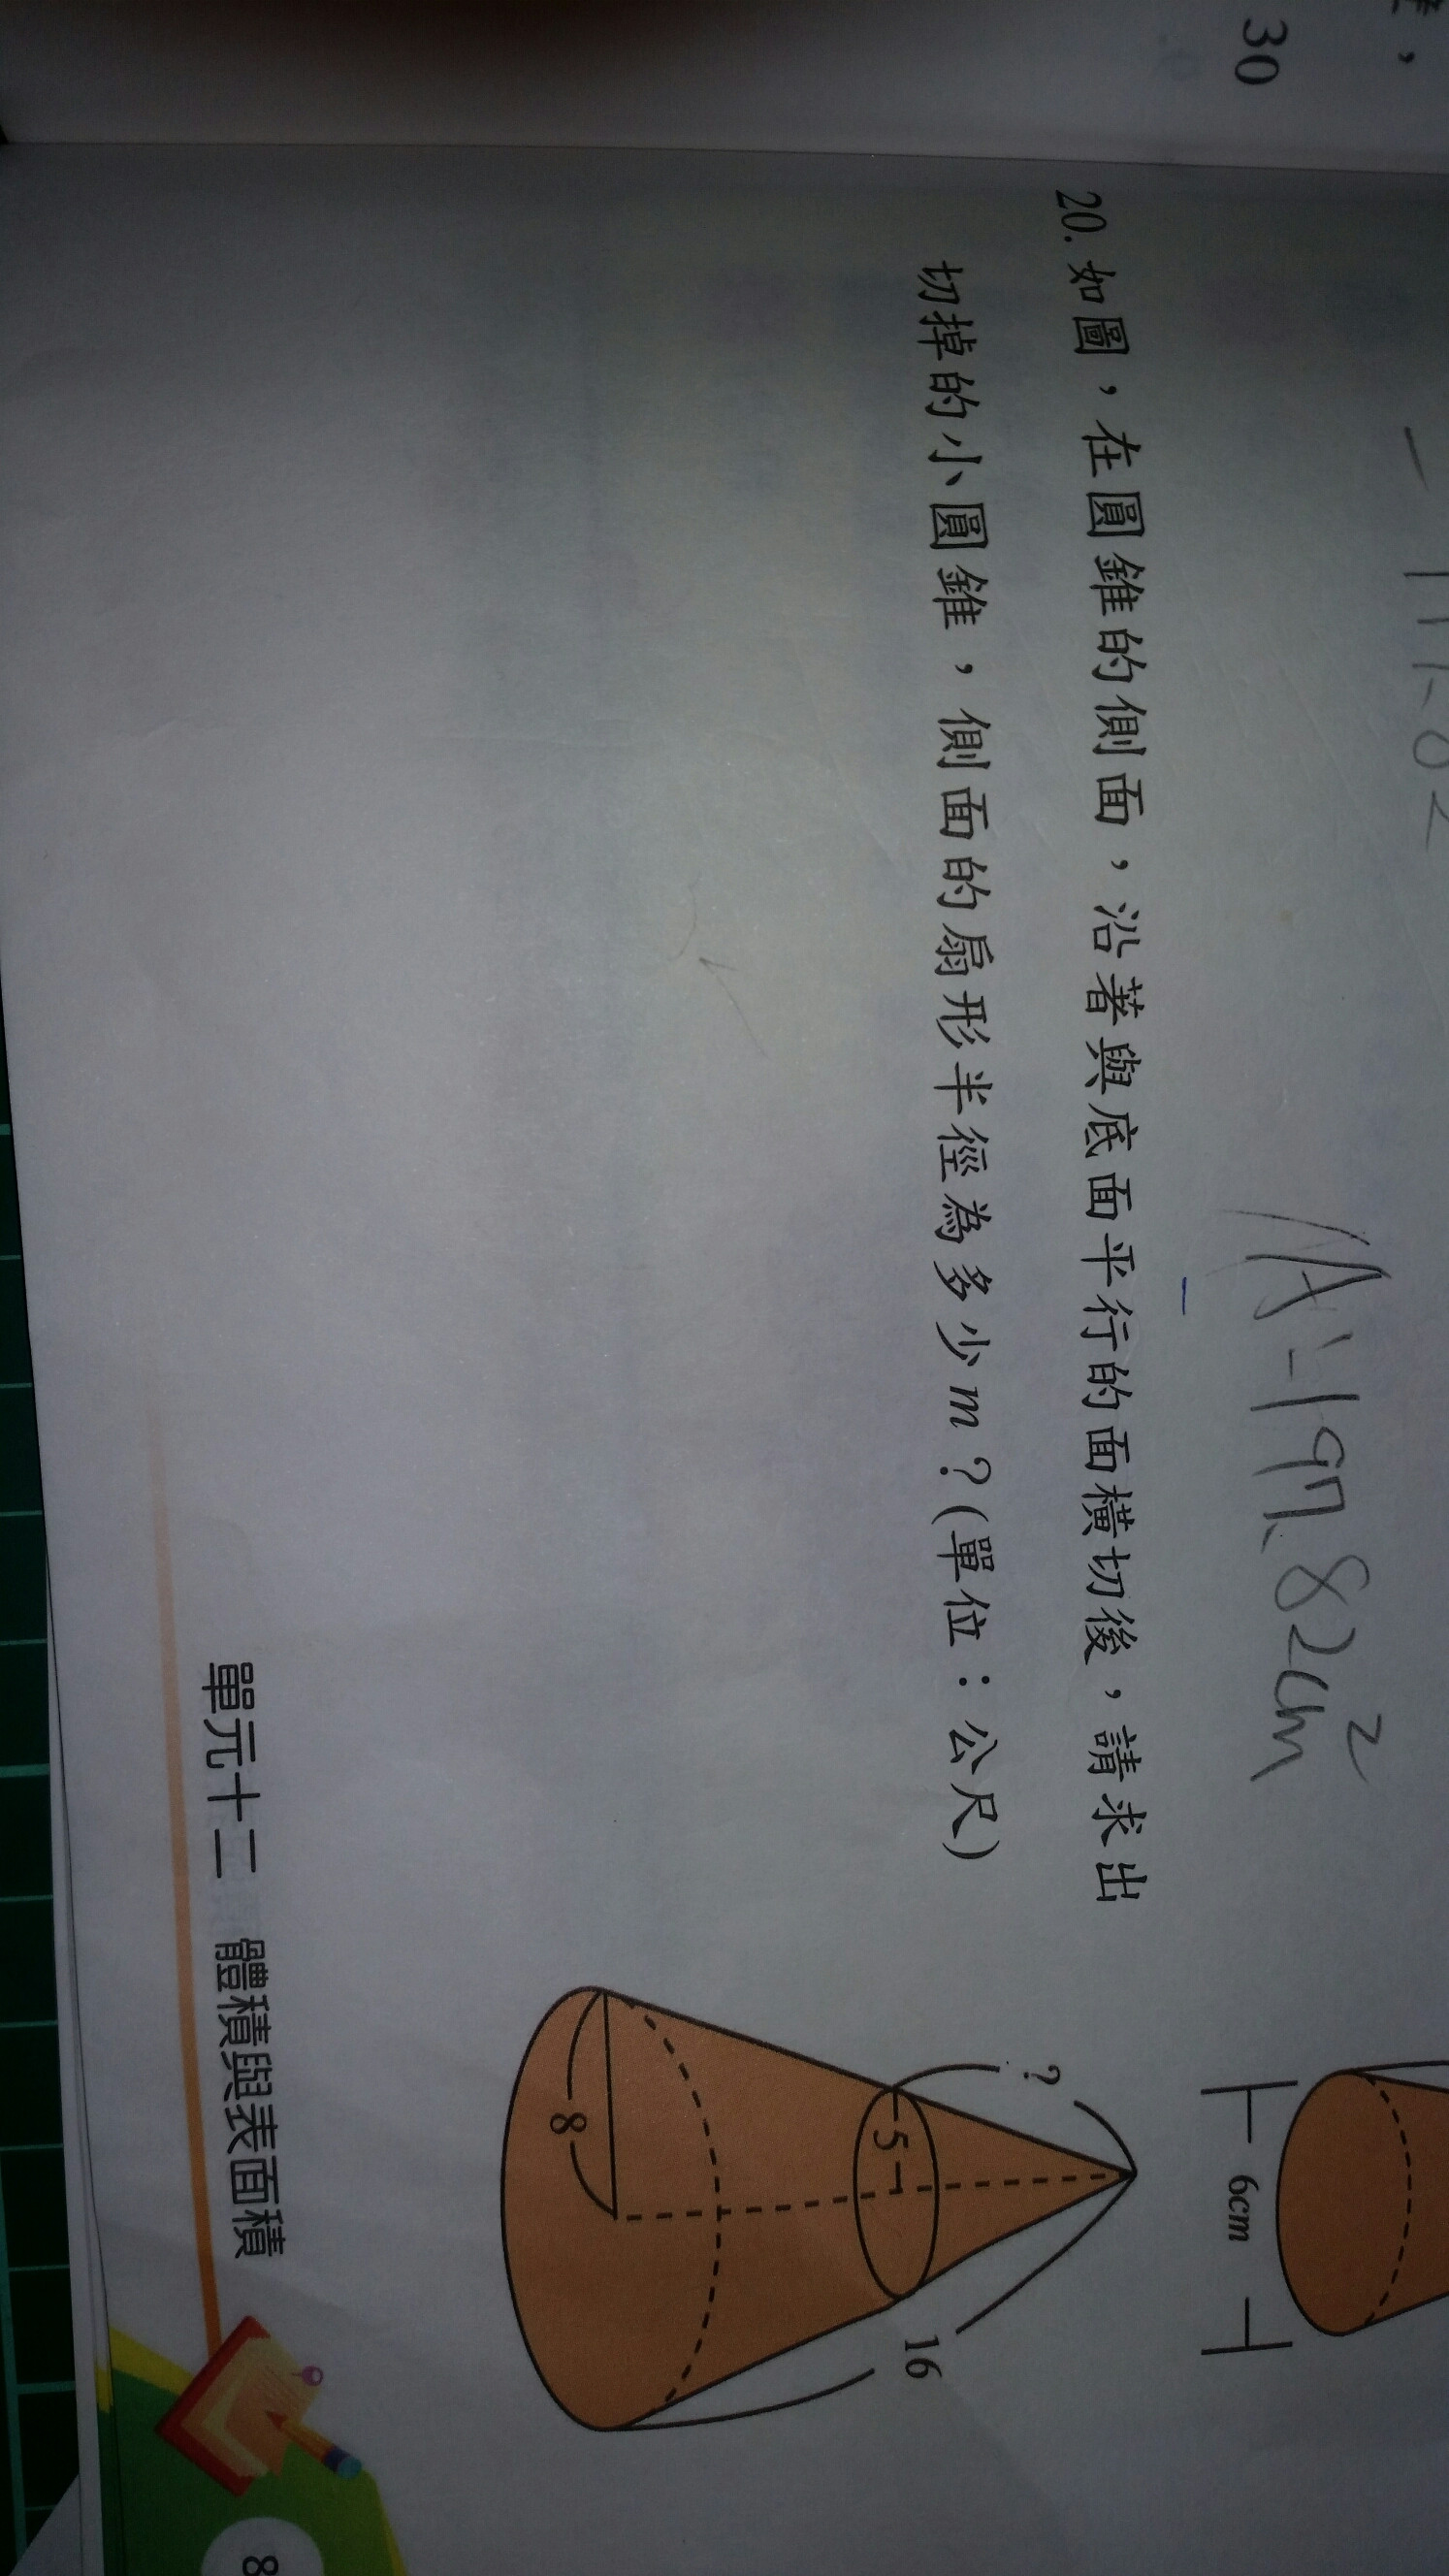 30
A:197.82cm²
6cm
20. 如圖，在圓錐的側面，沿著與底面平行的面橫切後，請求出
切掉的小圓錐，側面的扇形半徑為多少m？(單位：公尺)
?
5
16
8
單元十二 體積與表面積
8